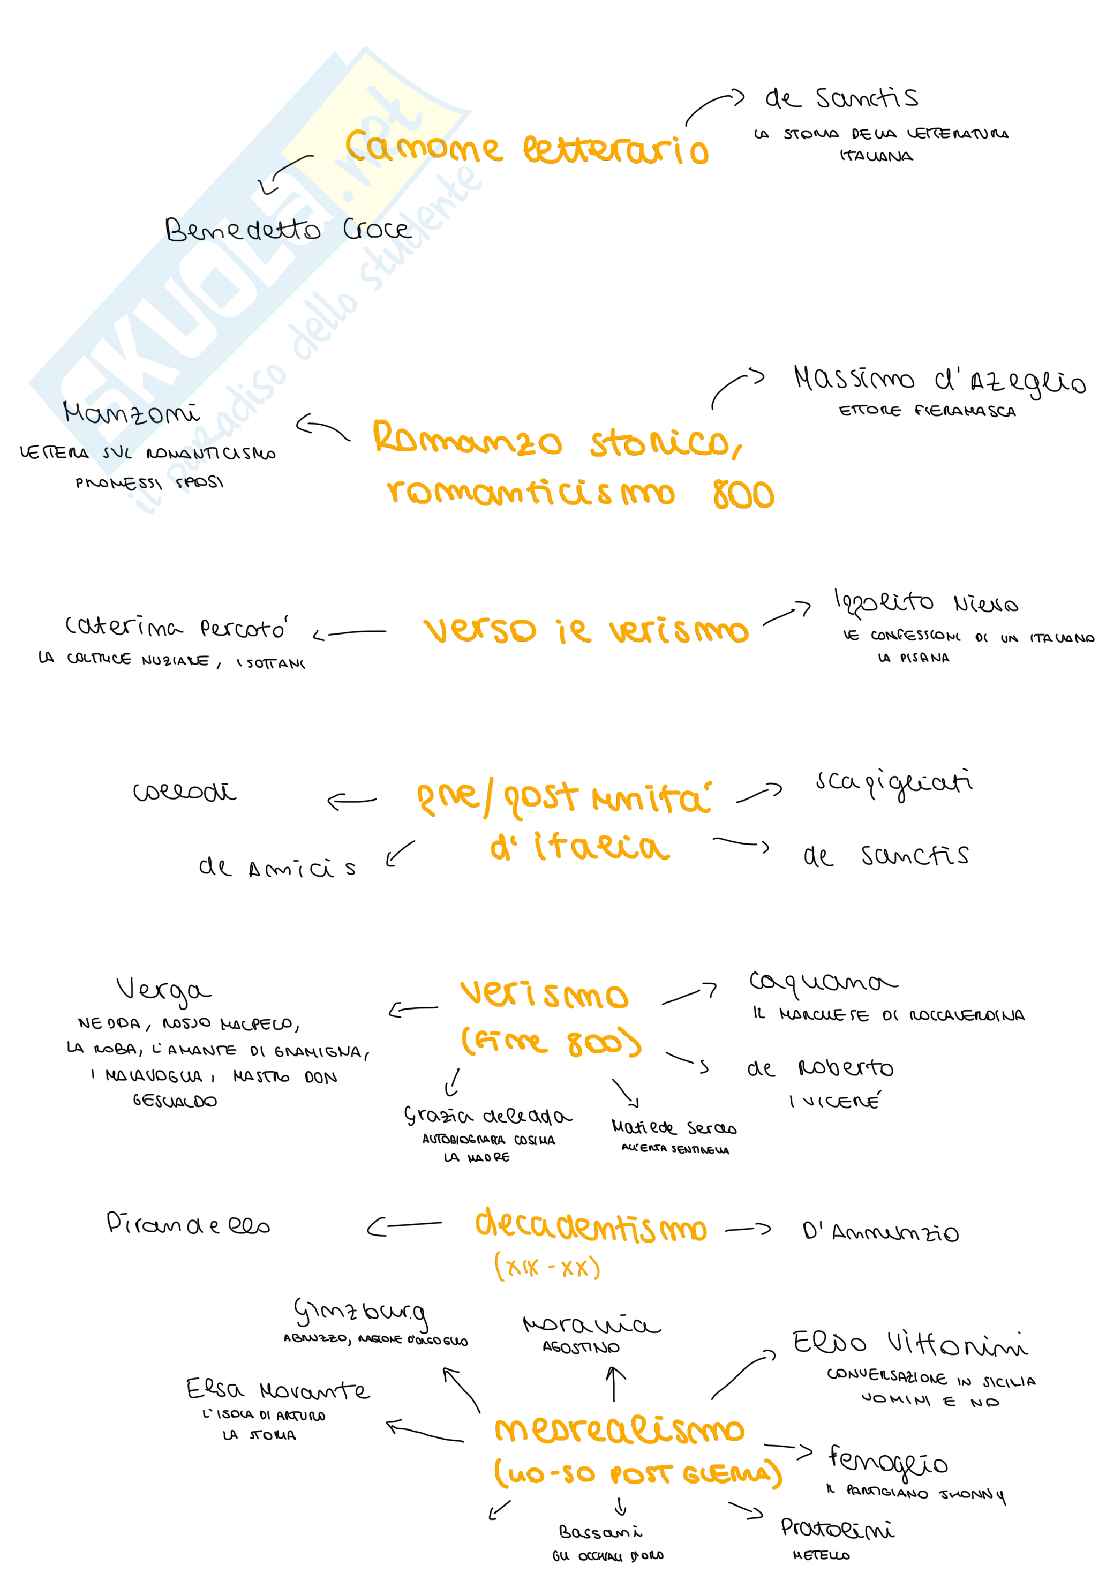 SKUOLA.net
il paradiso dello studente
Canone letterario
de Sanctis
LA STORIA DELLA LETTERATURA
ITALIANA
Benedetto Croce
Romanzo storico,
romanticismo 800
Massimo d'Azeglio
ETTORE FIERAMASCA
Manzoni
LETTERA SUL ROMANTICISMO
PROMESSI SPOSI
verso il verismo
Caterina Percoto'
LA COLTRICE NUZIALE, I SOTTANI
Ippolito Nievo
LE CONFESSIONI DI UN ITALIANO
LA PISANA
pre/post unita'
d'Italia
Collodi
de Amicis
scapigliati
de Sanctis
verismo
(fine 800)
Verga
NEDDA, ROSSO MALPELO,
LA ROBA, L'AMANTE DI GRAMIGNA,
I MALAVOGLIA, MASTRO DON
GESUALDO
Capuana
IL MARCHESE DI ROCCAVERDINA
de Roberto
I VICERÉ
Grazia deledda
AUTOBIOGRAFIA COSIMA
LA MADRE
Matilde Serao
ALL'ERTA SENTINELLA
decadentismo
(XIX-XX)
Pirandello
D'Annunzio
neorealismo
(40-50 POST GUERRA)
Ginzburg
ABRUZZO, RAGIONE D'ORGOGLIO
Moravia
AGOSTINO
Elio Vittorini
CONVERSAZIONE IN SICILIA
UOMINI E NO
Elsa Morante
L'ISOLA DI ARTURO
LA STORIA
Fenoglio
IL PARTIGIANO JHONNY
Bassani
GLI OCCHIALI D'ORO
Pratolini
METELLO